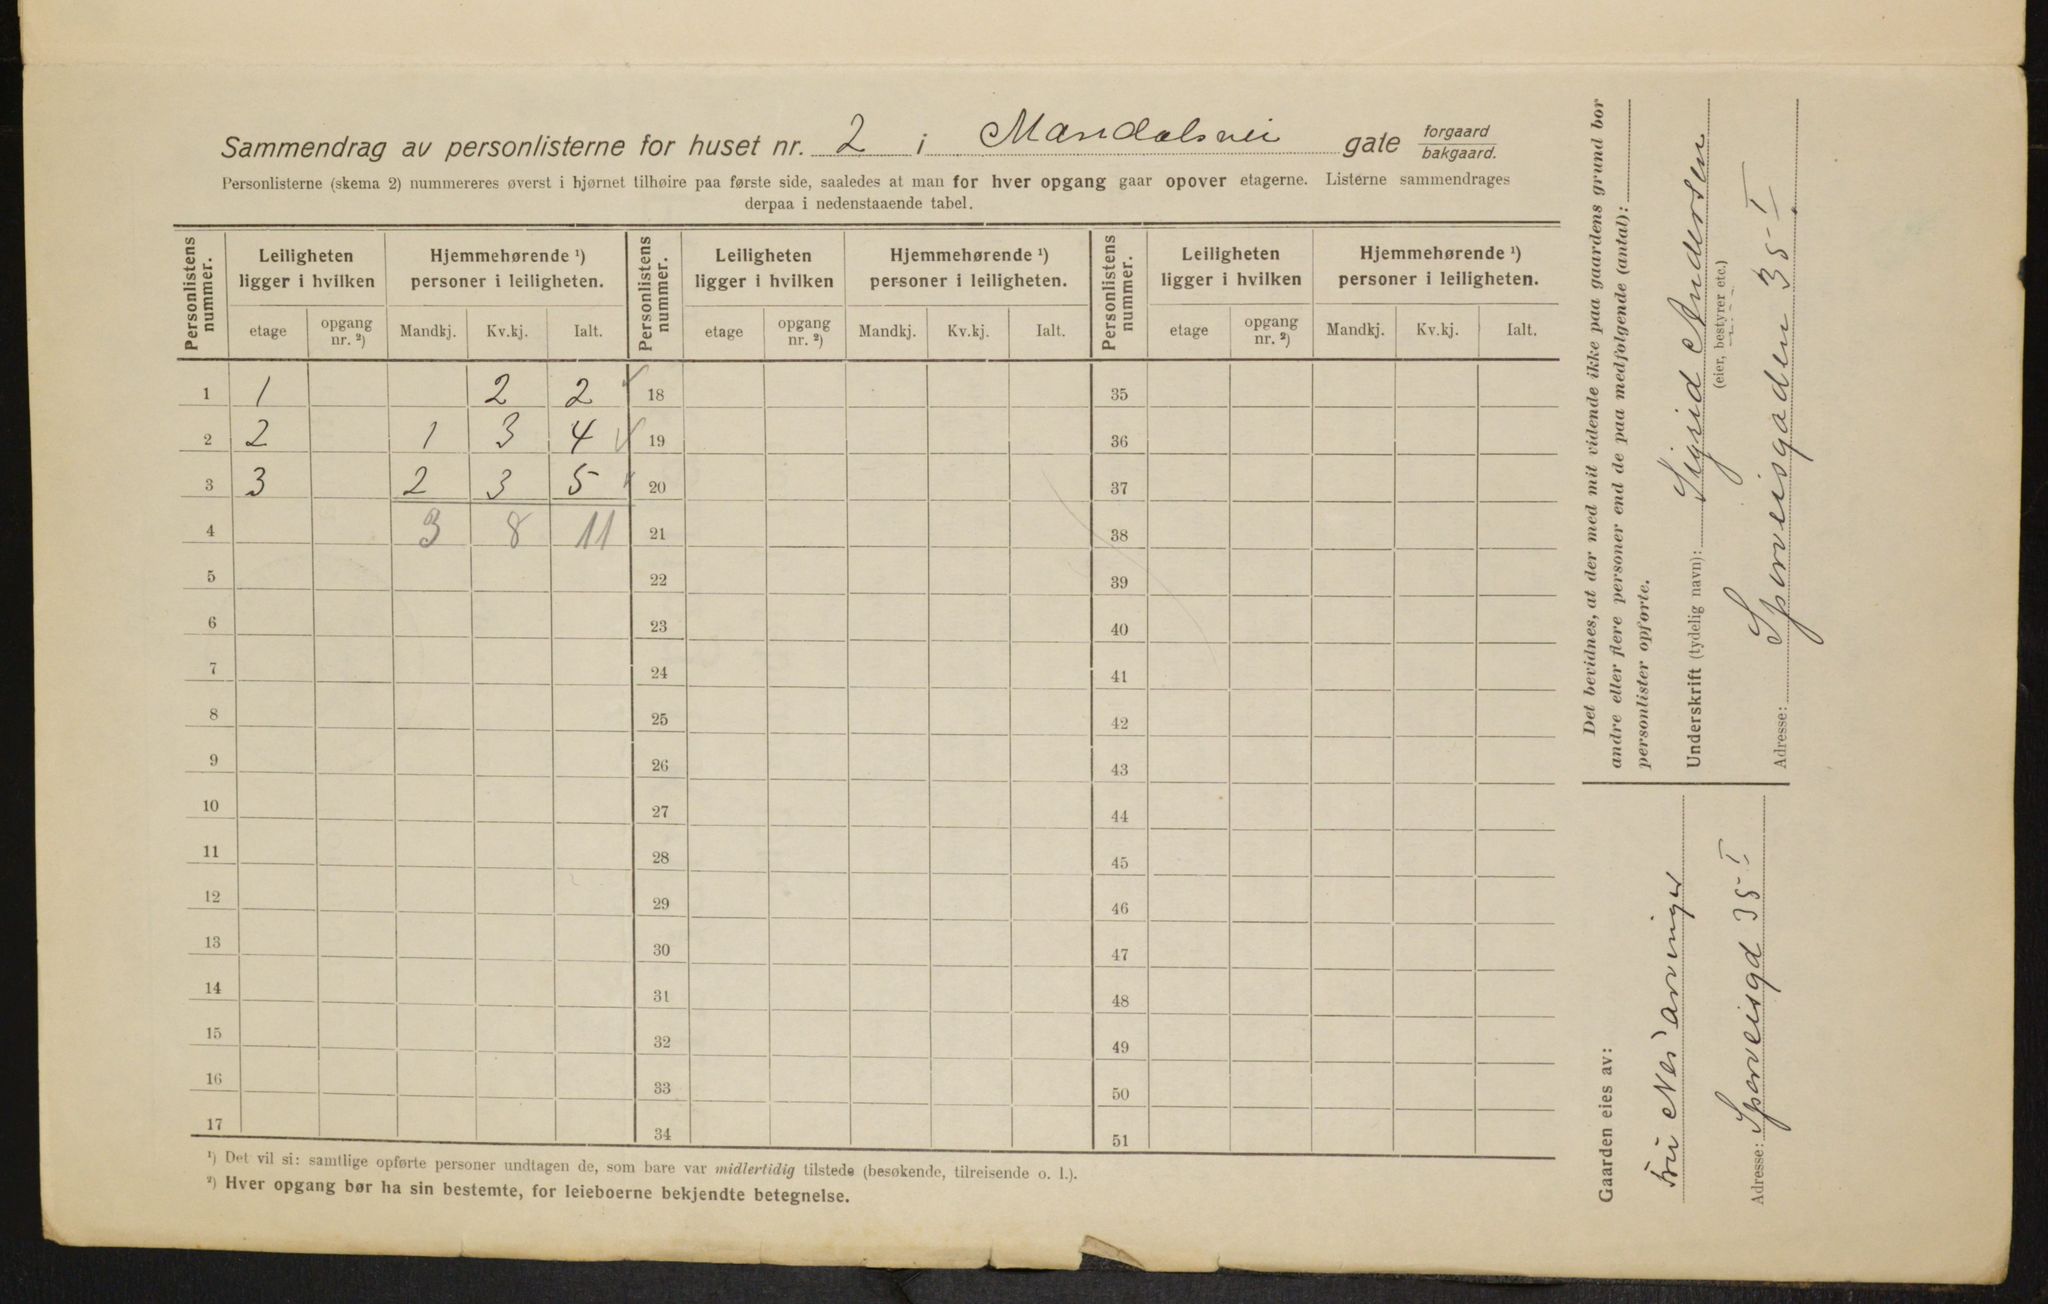 Sammendrag av personlisterne for huset nr. 2 i Mandalsvei gate forgaard / bakgaard.
Personlisterne (skema 2) nummereres øverst i hjørnet tilhøire paa første side, saaledes at man for hver opgang gaar opover etagerne. Listerne sammendrages
derpaa i nedenstaaende tabel.
Personlistens nummer. Leiligheten ligger i hvilken Hjemmehørende ¹) personer i leiligheten. Personlistens nummer. Leiligheten ligger i hvilken Hjemmehørende ¹) personer i leiligheten. Personlistens nummer. Leiligheten ligger i hvilken Hjemmehørende ¹) personer i leiligheten.
etage opgang nr. ²) Mandkj. Kv.kj. Ialt. etage opgang nr. ²) Mandkj. Kv.kj. Ialt. etage opgang nr. ²) Mandkj. Kv.kj. Ialt.
1 1 2 2 18 35
2 2 1 3 4 19 36
3 3 2 3 5 20 37
4 3 8 11 21 38
5 22 39
6 23 40
7 24 41
8 25 42
9 26 43
10 27 44
11 28 45
12 29 46
13 30 47
14 31 48
15 32 49
16 33 50
17 34 51
¹) Det vil si: samtlige opførte personer undtagen de, som bare var midlertidig tilstede (besøkende, tilreisende o. l.).
²) Hver opgang bør ha sin bestemte, for leieboerne bekjendte betegnelse.
Det bevidnes, at der med mit vidende ikke paa gaardens grund bor
andre eller flere personer end de paa medfølgende (antal):
personlister opførte.
Underskrift (tydelig navn): Sigrid Andersen
(eier, bestyrer etc.)
Adresse: Sporveisgaden 35 I
Gaarden eies av:
Fru Nes' arvinger
Adresse: Sporveisgd 35 I